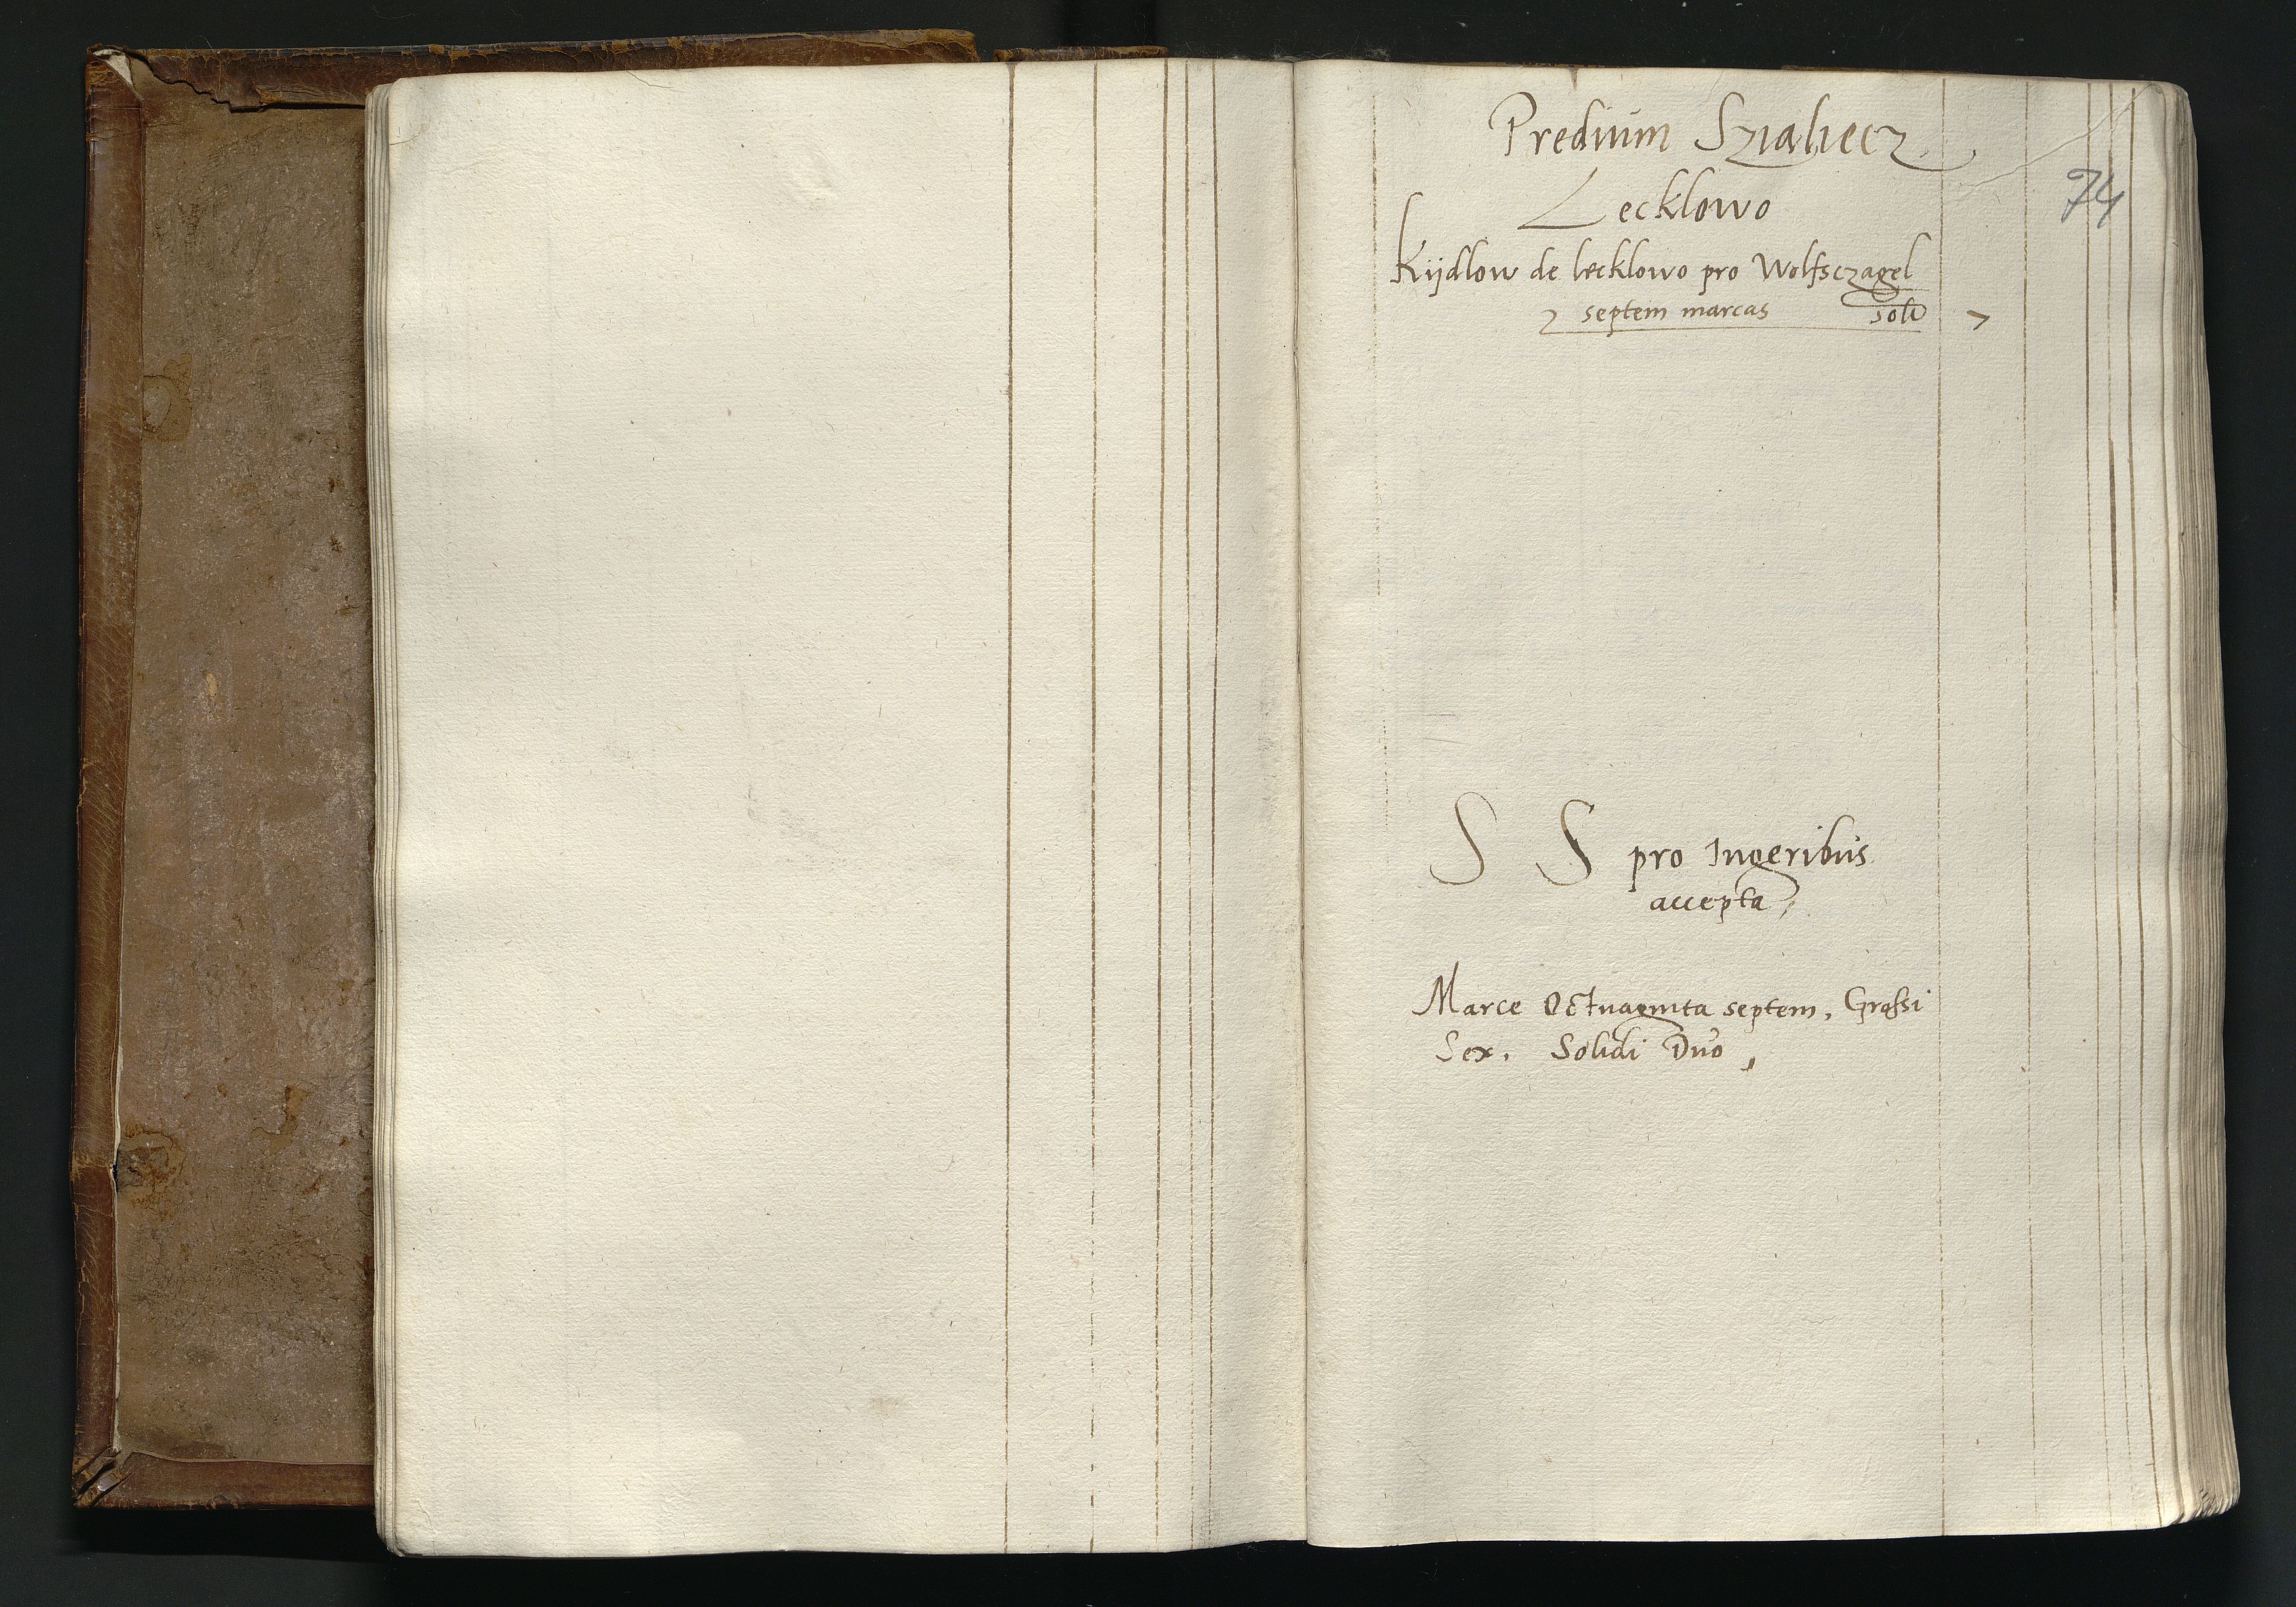 Predium Szialiecz
74
Lecklowo
Kijdlow de lecklowo pro Wolfsczagel
septem marcas solv 7
S S pro Iugeribus
accepta
Marce Octuaginta septem, Grossi
Sex. Solidi Duo,